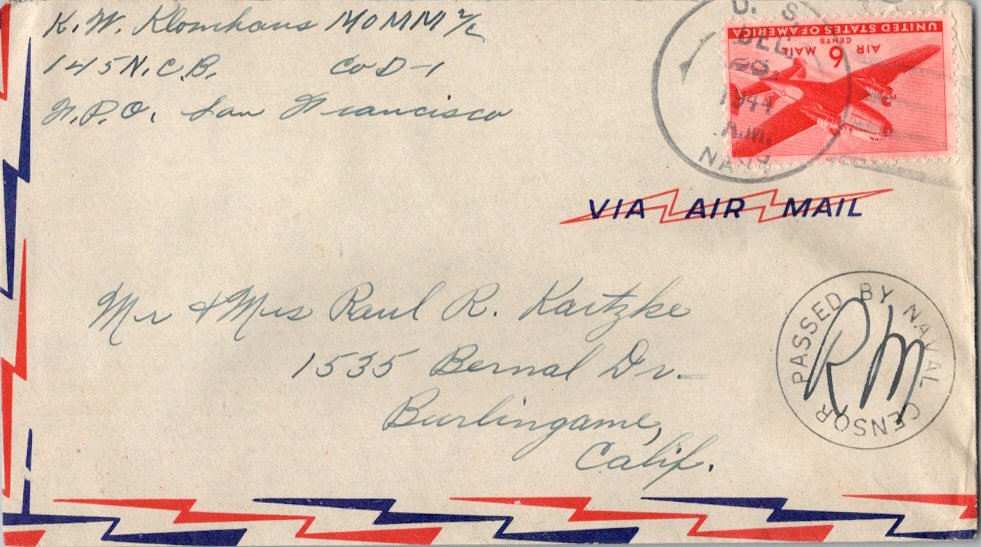 K. W. Klomhaus MOMM 2/c
145 N.C.B. Co D-1
F.P.O. San Francisco
U. S.
DEC
1944
A.M.
NAVY
UNITED STATES OF AMERICA
AIR MAIL
6 CENTS
VIA AIR MAIL
Mr & Mrs Paul R. Kartzke
1535 Bernal Dr.
Burlingame,
Calif.
PASSED BY NAVAL CENSOR
RM